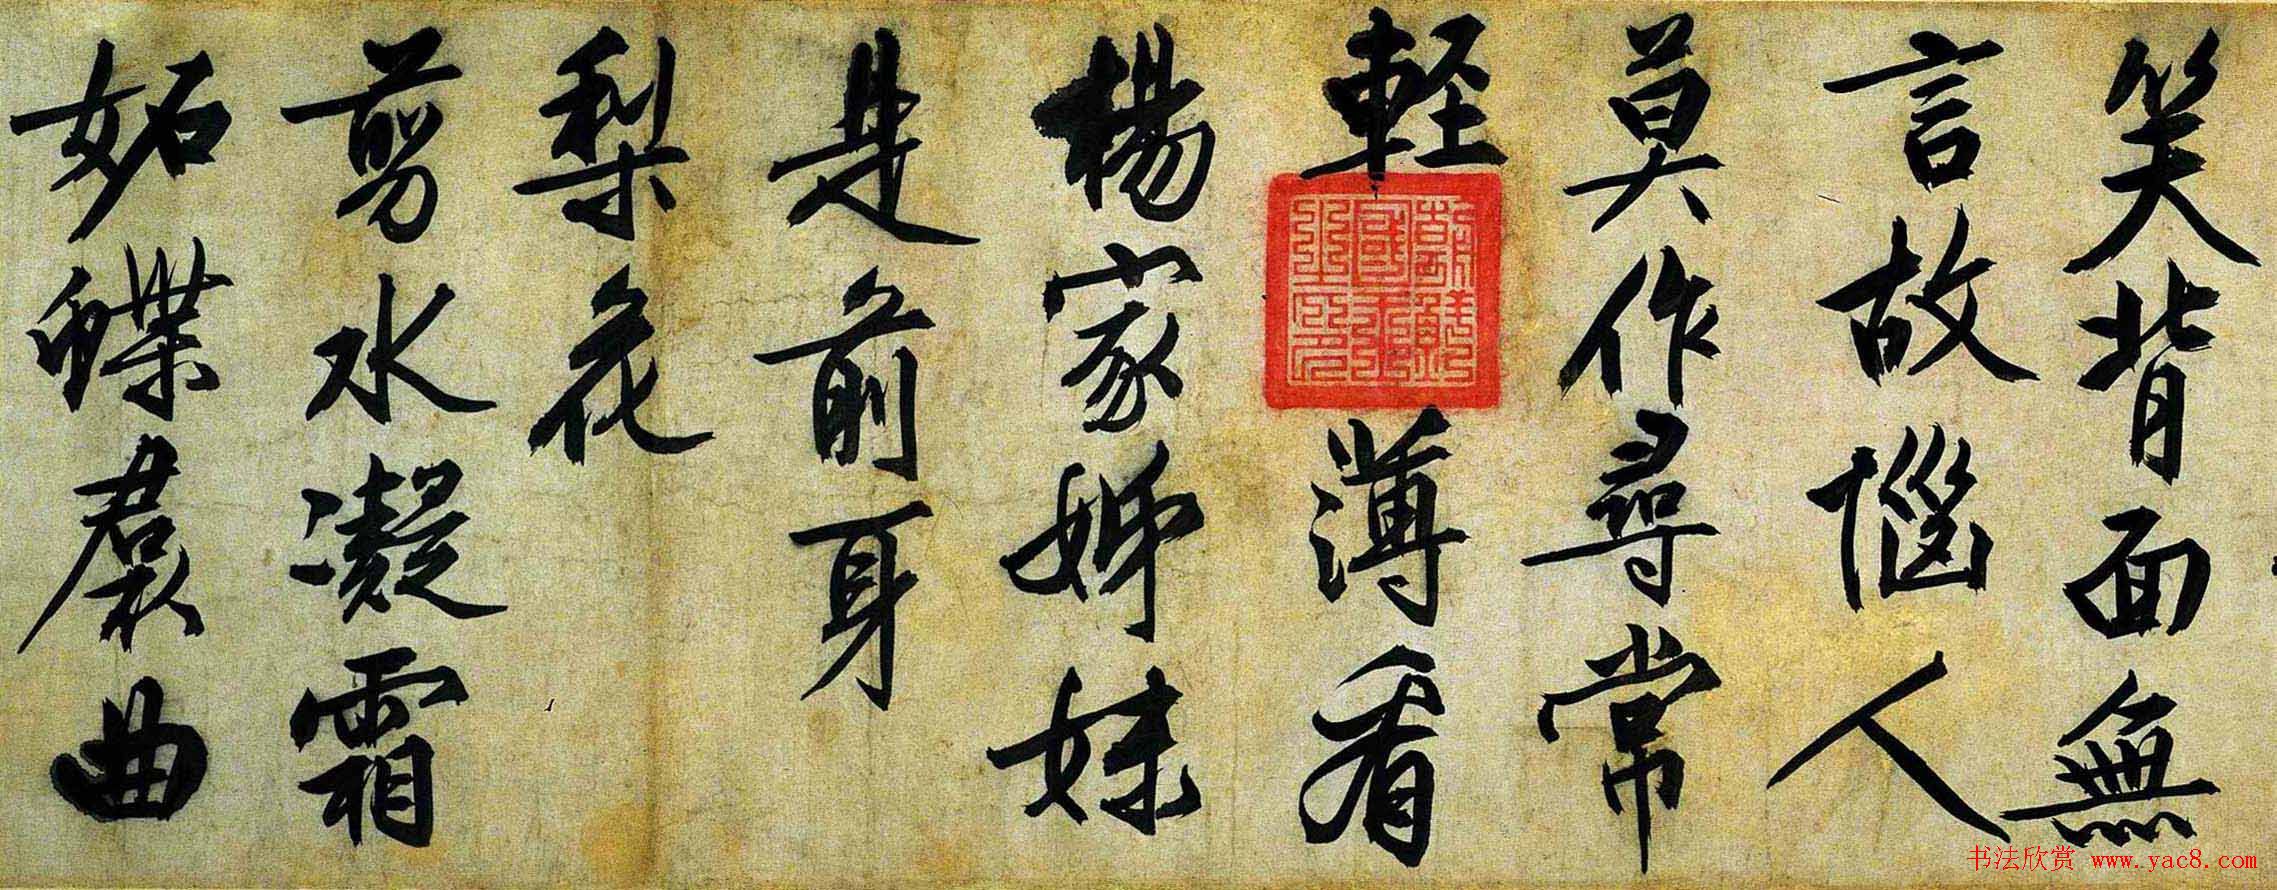 笑背面無
言故惱人
莫作尋常
輕薄看
楊家姊妹
是前身
梨花
剪水凝霜
妬蝶裠曲
书法欣赏 www.yac8.com